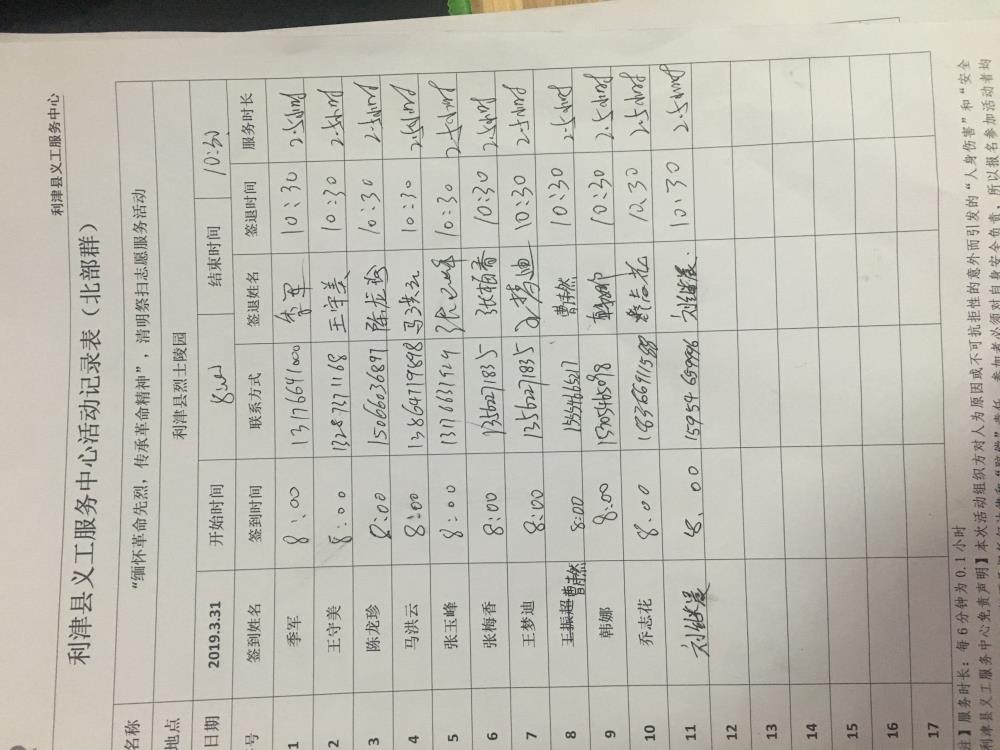 利津县义工服务中心
利津县义工服务中心活动记录表（北部群）
名称 “缅怀革命先烈，传承革命精神”，清明祭扫志愿服务活动
地点 利津县烈士陵园
日期 2019.3.31 开始时间 结束时间 10:30
号 签到姓名 签到时间 联系方式 签退姓名 签退时间 服务时长
1 季军 8:00 13176641000 季军 10:30 2.5小时
2 王守美 8:00 13287271168 王守美 10:30 2.5小时
3 陈龙珍 8:00 15066036897 陈龙珍 10:30 2.5小时
4 马洪云 8:00 13864719898 马洪云 10:30 2.5小时
5 张玉峰 8:00 张玉峰 10:30 2.5小时
6 张梅香 8:00 13562271835 张梅香 10:30 2.5小时
7 王梦迪 8:00 13562271835 王梦迪 10:30 2.5小时
8 王振超 曹萧然 8:00 15554665217 曹萧然 10:30 2.5小时
9 韩娜 8:00 15305465098 韩娜 10:30 2.5小时
10 乔志花 8:00 乔志花 10:30 2.5小时
11 8:00 10:30 2.5小时
12
13
14
15
16
17
注】服务时长：每6分钟为0.1小时
利津县义工服务中心免责声明】本次活动组织方对人为原因或不可抗拒性的意外而引发的“人身伤害”和“安全
参加者必须对自身安全负责，所以报名参加活动者均